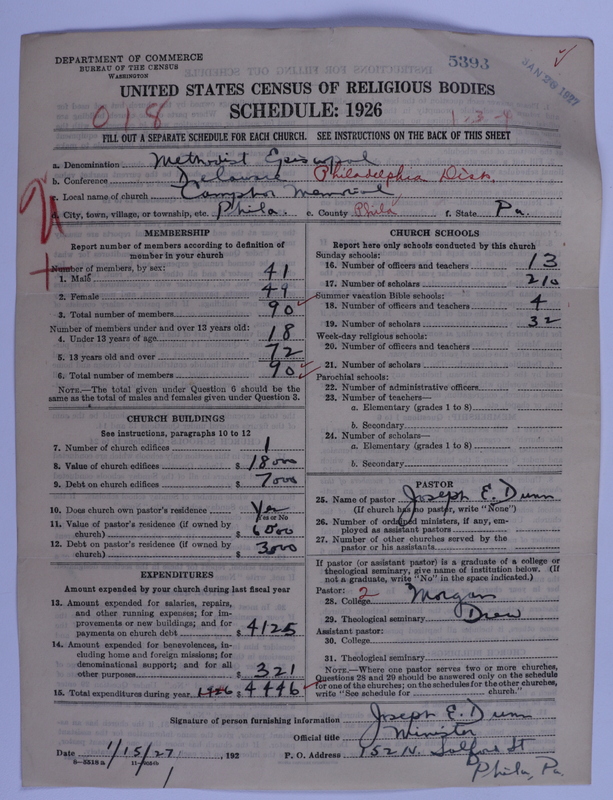 DEPARTMENT OF COMMERCE
BUREAU OF THE CENSUS
WASHINGTON
5393
JAN 26 1927
UNITED STATES CENSUS OF RELIGIOUS BODIES
SCHEDULE: 1926
018
1-3-4
FILL OUT A SEPARATE SCHEDULE FOR EACH CHURCH. SEE INSTRUCTIONS ON THE BACK OF THIS SHEET
a. Denomination Methodist Episcopal
b. Conference Delaware Philadelphia Dist
c. Local name of church Camphor Memorial
d. City, town, village, or township, etc. Phila. e. County Phila f. State Pa.
MEMBERSHIP
Report number of members according to definition of member in your church
Number of members, by sex:
1. Male 41
2. Female 49
3. Total number of members 90
Number of members under and over 13 years old:
4. Under 13 years of age 18
5. 13 years old and over 72
6. Total number of members 90
NOTE.—The total given under Question 6 should be the same as the total of males and females given under Question 3.
CHURCH BUILDINGS
See instructions, paragraphs 10 to 12
7. Number of church edifices 1
8. Value of church edifices $ 18000
9. Debt on church edifices $ 7000
10. Does church own pastor's residence Yes
Yes or No
11. Value of pastor's residence (if owned by church) $ 6000
12. Debt on pastor's residence (if owned by church) $ 3000
EXPENDITURES
Amount expended by your church during last fiscal year
13. Amount expended for salaries, repairs, and other running expenses; for improvements or new buildings; and for payments on church debt $ 4125
14. Amount expended for benevolences, including home and foreign missions; for denominational support; and for all other purposes $ 321
15. Total expenditures during year 1926 $ 4446
CHURCH SCHOOLS
Report here only schools conducted by this church
Sunday schools:
16. Number of officers and teachers 13
17. Number of scholars 210
Summer vacation Bible schools:
18. Number of officers and teachers 4
19. Number of scholars 32
Week-day religious schools:
20. Number of officers and teachers
21. Number of scholars
Parochial schools:
22. Number of administrative officers
23. Number of teachers—
a. Elementary (grades 1 to 8)
b. Secondary
24. Number of scholars—
a. Elementary (grades 1 to 8)
b. Secondary
PASTOR
25. Name of pastor Joseph E. Dunn
(If church has no pastor, write "None")
26. Number of ordained ministers, if any, employed as assistant pastors
27. Number of other churches served by the pastor or his assistants
If pastor (or assistant pastor) is a graduate of a college or theological seminary, give name of institution below. (If not a graduate, write "No" in the space indicated.)
Pastor: 2
28. College Morgan
29. Theological seminary Drew
Assistant pastor:
30. College
31. Theological seminary
NOTE.—Where one pastor serves two or more churches, Questions 28 and 29 should be answered only on the schedule for one of the churches; on the schedules for the other churches, write "See schedule for church."
Signature of person furnishing information Joseph E. Dunn
Official title Minister
Date 1/15/27, 192 P. O. Address 152 N. Salford St
Phila, Pa.